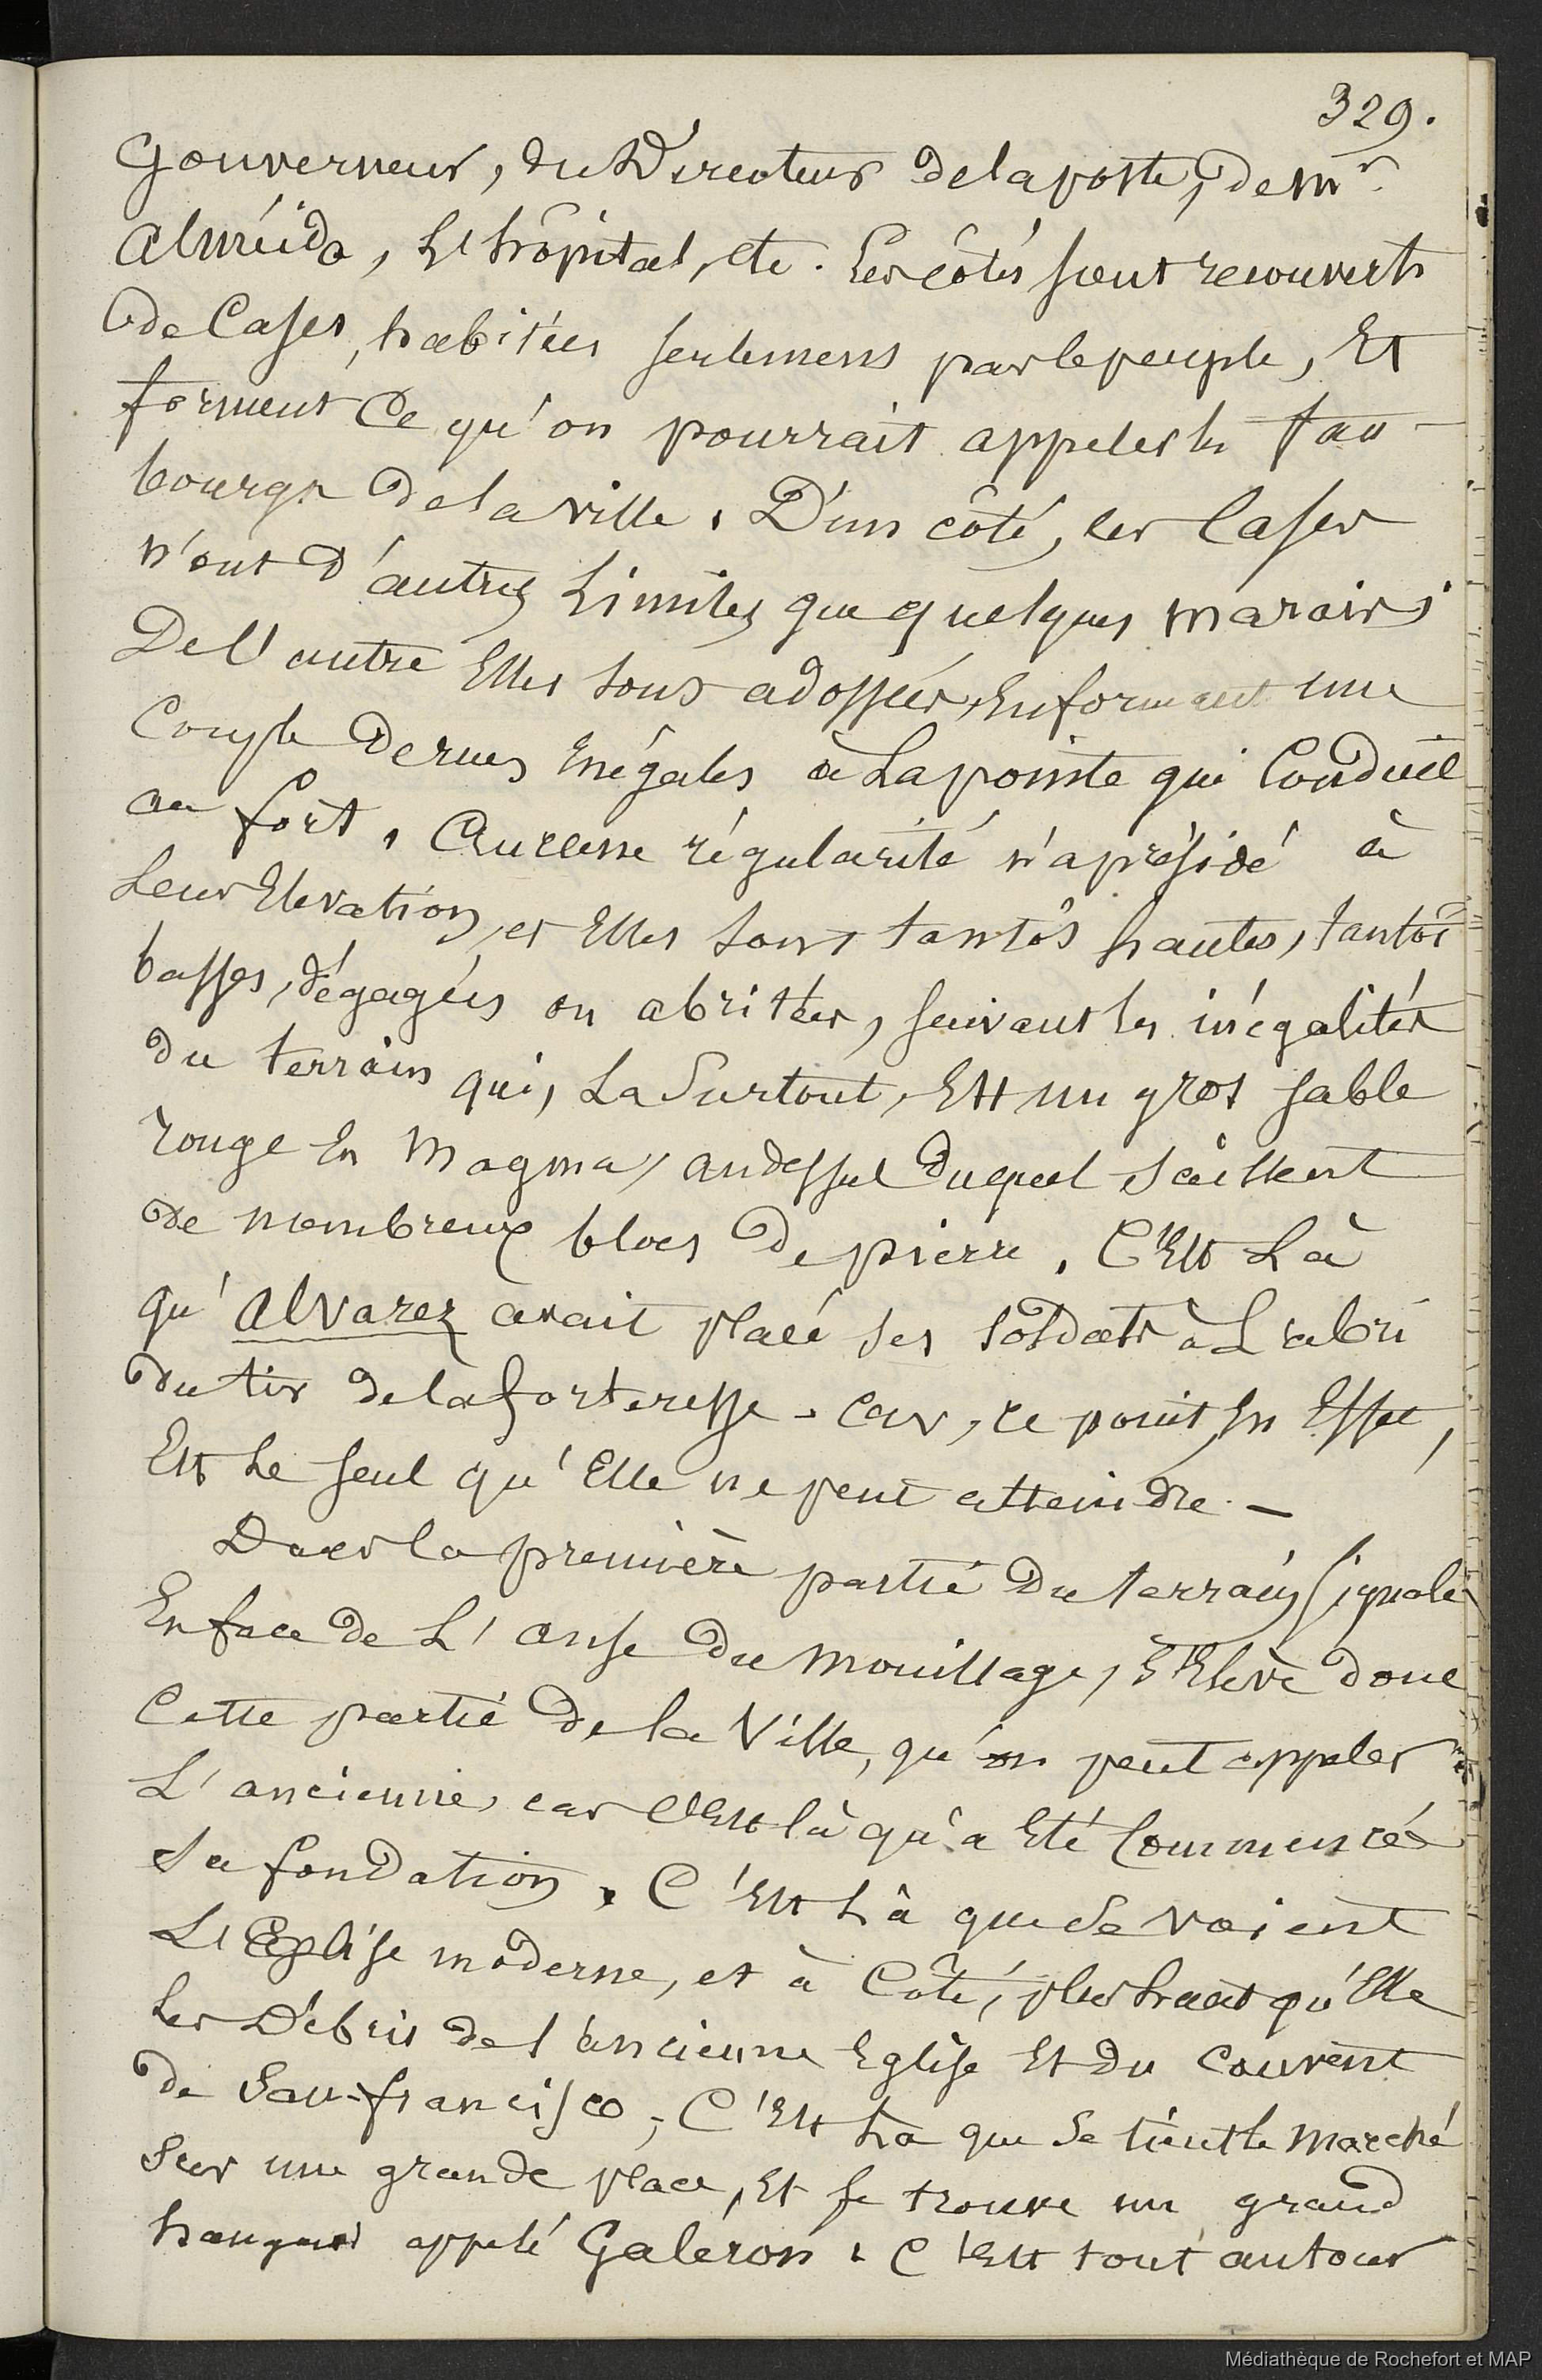 329.
Gouverneur, du Directeur de la poste, de Mr
Alméida, L'hôpital, etc. Les côtés sont recouverts
de Cases, habitées seulement par le peuple, Et
forment Ce qu'on pourrait appeler les fau-
bourgs de la ville. D'un côté, les Cases
n'ont d'autres Limites que quelques marais;
De l'autre Elles sont adossées, En formant une
Couple de rues Inégales à La pointe qui Conduit
au fort. Aucune régularité n'a présidé à
Leur Elévation, et Elles sont tantôt hautes, tantôt
basses, dégagées ou abritées, suivant les inégalités
du terrain qui, La Surtout, Est un gros sable
rouge En Magma, au dessus duquel saillent
de nombreux blocs de pierre. C'Est Là
qu'Alvarez avait placé ses soldats à L'abri
du tir de la forteresse. Car, ce point, En Effet,
Est Le seul qu'Elle ne peut atteindre. —
Dans la première partie du terrain signalé
En face de L'anse du Mouillage, s'Elève donc
Cette partie de la Ville, qu'on peut appeler
L'ancienne, car C'Est là qu'a Eté Commencée
Sa fondation. C'Est Là que se voient
L'Eglise moderne, et à Côté, plus haut qu'Elle
Les Débris de l'ancienne Eglise Et du Couvent
de San-francisco; C'Est Là que se tient le Marché
Sur une grande place, Et se trouve un grand
hangar appelé Galéron. C'Est tout autour
Médiathèque de Rochefort et MAP